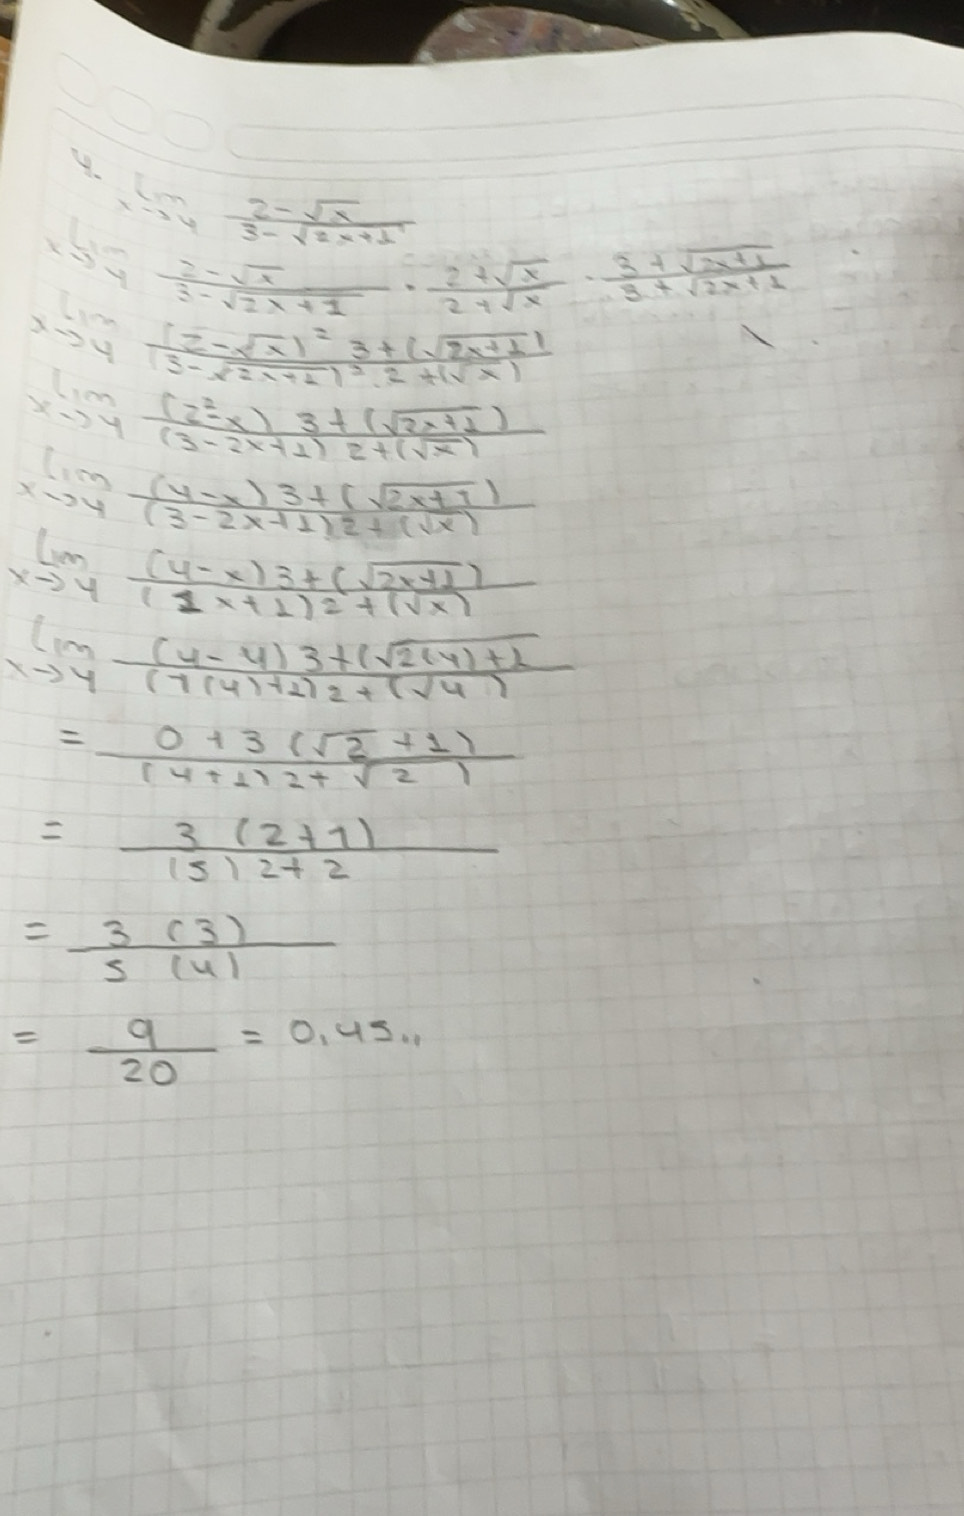 4. lim x→4 (2-√x)/(3-√(2x+1))
lim x→4 (2-√x)/(3-√(2x+1)) · (2+√x)/(2+√x) · (3+√(2x+1))/(3+√(2x+1))
lim x→4 ((2-√x)² 3+(√(2x+1)))/((3-√(2x+1))² . 2+(√x))
lim x→4 ((2²-x) 3+(√(2x+1)))/((3-2x+1) 2+(√x))
lim x→4 ((4-x) 3+(√(2x+1)))/((3-2x+1) 2+(√x))
lim x→4 ((4-x) 3+(√(2x+1)))/((1x+1) 2+(√x))
lim x→4 ((4-4) 3+(√(2(4)+1))/((1(4)+1) 2+(√4))
= (0+3(√2+1))/((4+1)2+√2)
= 3(2+1)/(5)2+2
= 3(3)/5(4)
= 9/20 = 0.45,,